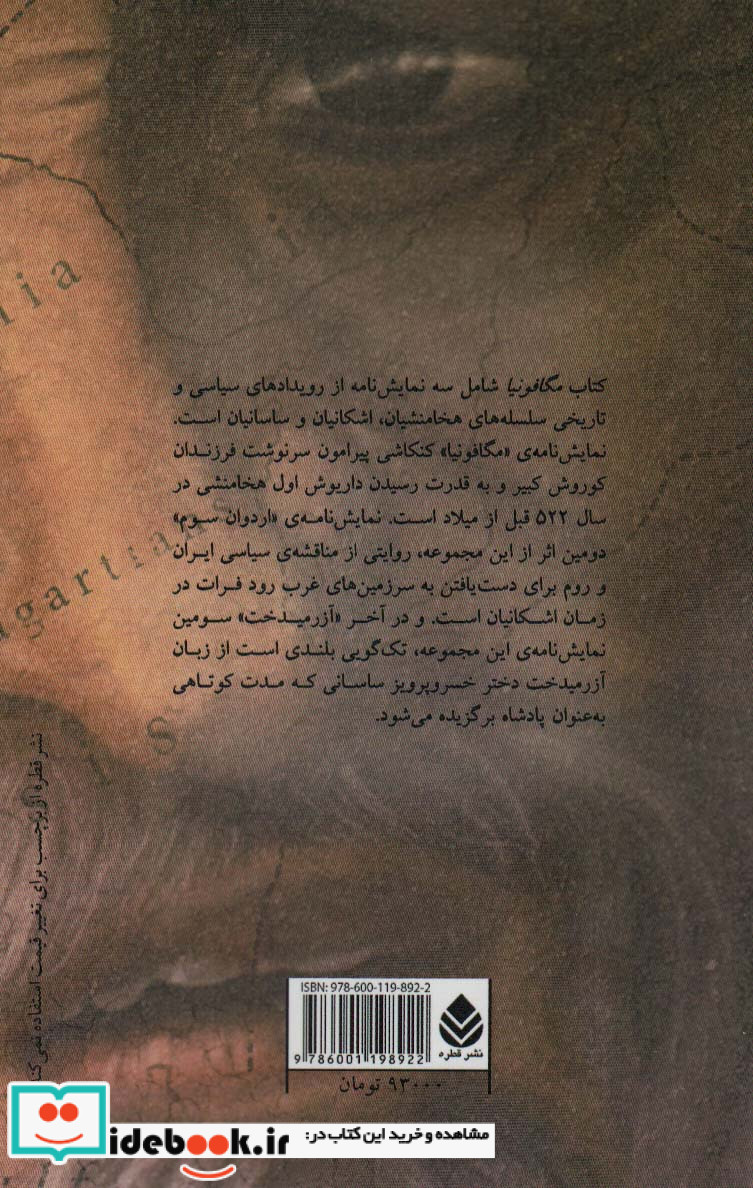 lia
i
agartrans
is
کتاب مگافونیا شامل سه نمایش‌نامه از رویدادهای سیاسی و
تاریخی سلسله‌های هخامنشیان، اشکانیان و ساسانیان است.
نمایش‌نامه‌ی «مگافونیا» کنکاشی پیرامون سرنوشت فرزندان
کوروش کبیر و به قدرت رسیدن داریوش اول هخامنشی در
سال ۵۲۲ قبل از میلاد است. نمایش‌نامه‌ی «اردوان سوم»
دومین اثر از این مجموعه، روایتی از مناقشه‌ی سیاسی ایران
و روم برای دست‌یافتن به سرزمین‌های غرب رود فرات در
زمان اشکانیان است. و در آخر «آزرمیدخت» سومین
نمایش‌نامه‌ی این مجموعه، تک‌گویی بلندی است از زبان
آزرمیدخت دختر خسروپرویز ساسانی که مدت کوتاهی
به‌عنوان پادشاه برگزیده می‌شود.
نشر قطره از برچسب برای تغییر قیمت استفاده نمی‌کند
ISBN: 978-600-119-892-2
9 786001 198922
نشر قطره
۹۳۰۰۰ تومان
مشاهده و خرید این کتاب در:
idebook.ir